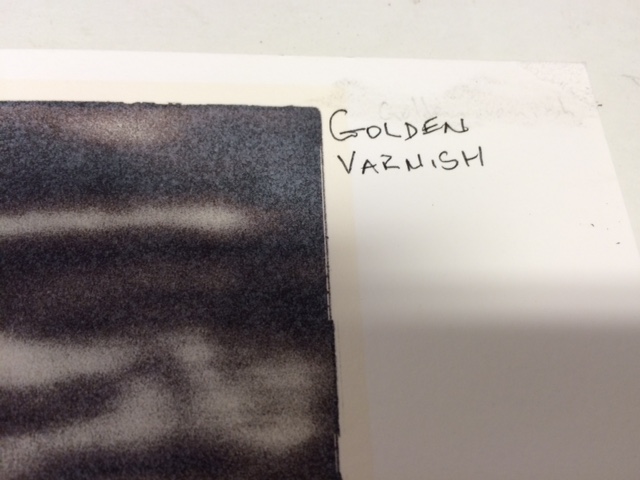 GOLDEN
VARNISH